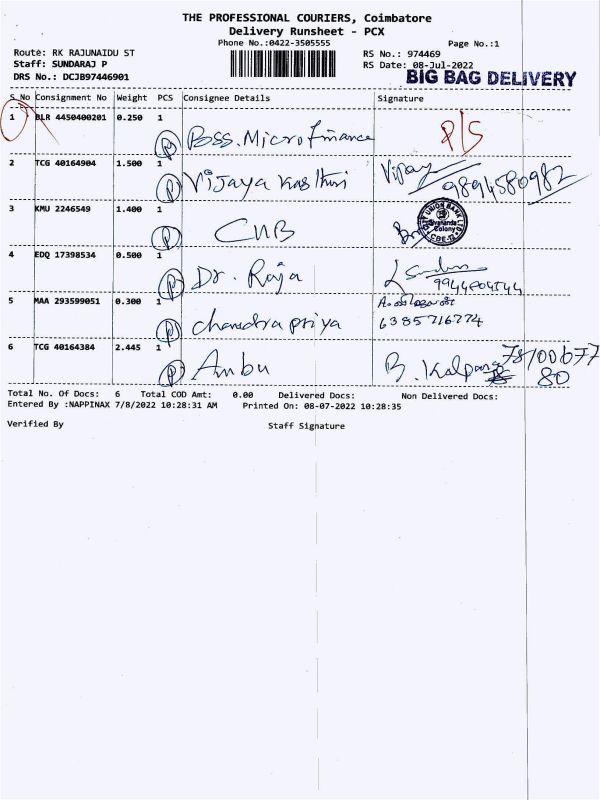 THE PROFESSIONAL COURIERS, Coimbatore
Delivery Runsheet - PCX
Phone No.:0422-3505555
Page No.:1
Route: RK RAJUNAIDU ST
RS No.: 974469
Staff: SUNDARAJ P
RS Date: 08-Jul-2022
DRS No.: DCJB97446901
BIG BAG DELIVERY
S No Consignment No Weight PCS Consignee Details Signature
1 BLR 4450400201 0.250 1
P Boss. Microfinance P/S
2 TCG 40164904 1.500 1
P Vijaya Kasthuri Vijay 9894580982
3 KMU 2246549 1.400 1
P CUB UNION BANK Sivananda Colony CBE-12
4 EDQ 17398534 0.500 1
P Dr. Raja
5 MAA 293599051 0.300 1
P Chandra priya 6385716774
6 TCG 40164384 2.445 1
P Ambu B. Kalpana 78100677
80
Total No. Of Docs: 6 Total COD Amt: 0.00 Delivered Docs: Non Delivered Docs:
Entered By :NAPPINAX 7/8/2022 10:28:31 AM Printed On: 08-07-2022 10:28:35
Verified By Staff Signature